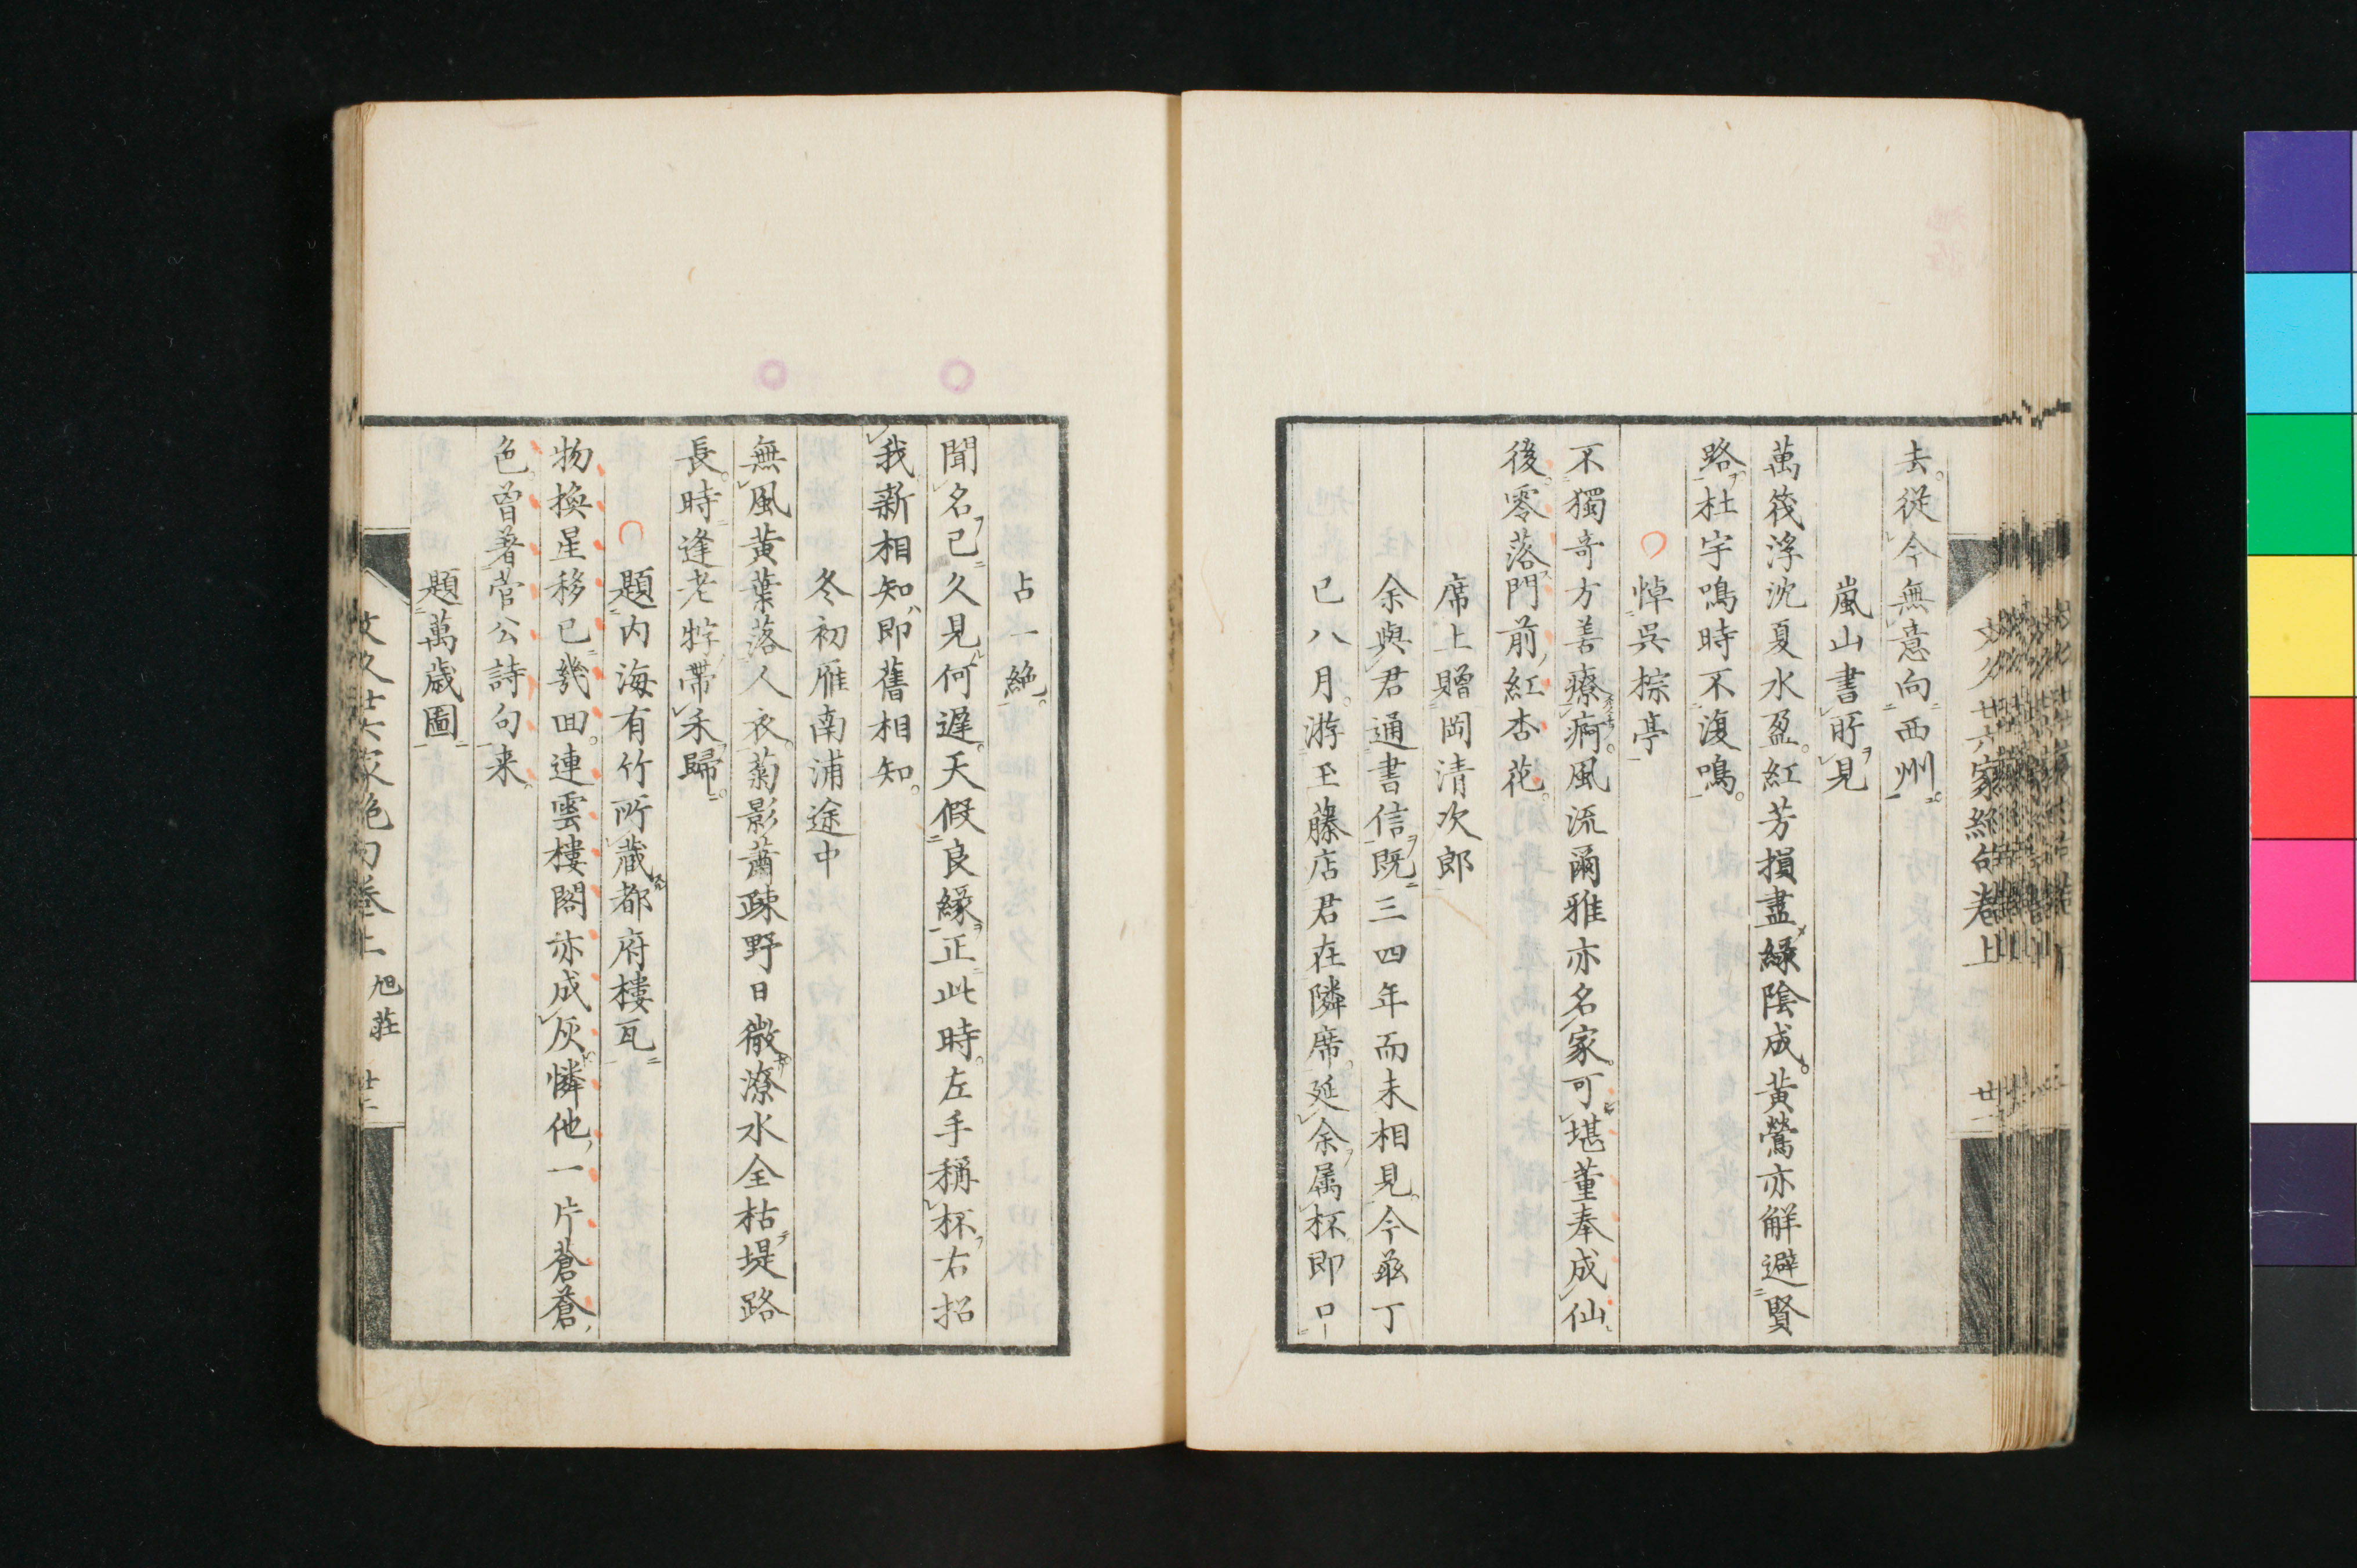 去。從今無意向西州。
嵐山書所見
萬筏浮沈夏水盈。紅芳損盡緑陰成。黄鶯亦解避賢
路。杜宇鳴時不復鳴。
悼呉棕亭
不獨奇方善療痾。風流爾雅亦名家。可堪董奉成仙
後。零落門前紅杏花。
席上贈岡清次郎
余與君通書信既三四年而未相見。今茲丁
已八月。游玉藤店君在隣席。延余属杯即口
占一絶。
聞名已久見何遅。天假良縁正此時。左手稱杯右招
我。新相知即舊相知。
冬初雁南浦途中
無風黄葉落人衣。菊影蕭疎野日微。潦水全枯堤路
長。時逢老牸帶禾歸。
題内海有竹所藏都府樓瓦
物換星移已幾回。連雲樓閣亦成灰。憐他一片蒼蒼
色。曾著菅公詩句来。
題萬歳圖
文久廿六家絶句巻上 旭荘 廿二
文久廿六家絶句巻上 廿一